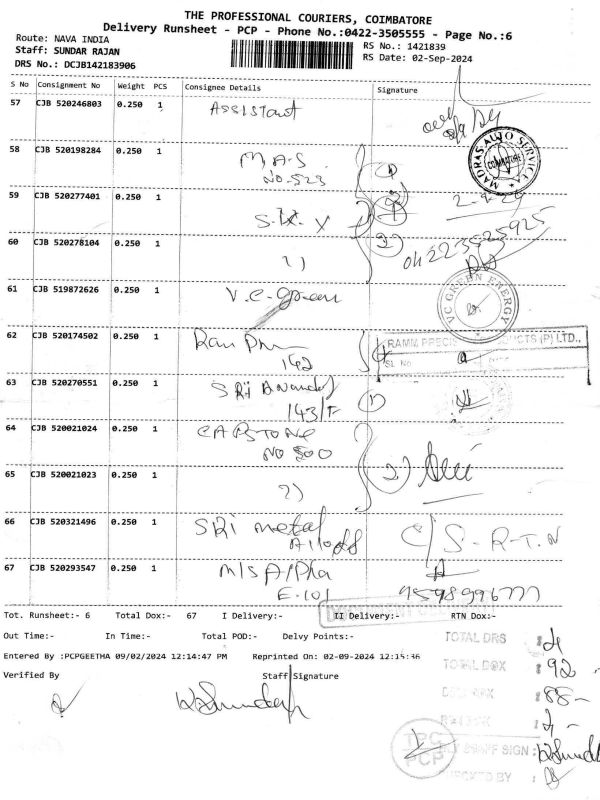 THE PROFESSIONAL COURIERS, COIMBATORE
Delivery Runsheet - PCP - Phone No.:0422-3505555 - Page No.:6
Route: NAVA INDIA
RS No.: 1421839
Staff: SUNDAR RAJAN
RS Date: 02-Sep-2024
DRS No.: DCJB142183906
S No Consignment No Weight PCS Consignee Details Signature
57 CJB 520246803 0.250 1 Assistant
58 CJB 520198284 0.250 1 M.A.S
No. 523
MADRAS AUTO SERVICE
COIMBATORE
59 CJB 520277401 0.250 1
60 CJB 520278104 0.250 1
61 CJB 519872626 0.250 1 V.C. green
VC GREEN ENERGY
62 CJB 520174502 0.250 1
142
RAMM PRECIS CTS (P) LTD.,
SL No
63 CJB 520270551 0.250 1 SRi Anand
143/F
64 CJB 520021024 0.250 1 CAPSTONE
No 800
65 CJB 520021023 0.250 1
66 CJB 520321496 0.250 1 SRi metal
Alloys
C/S-R-T-N
67 CJB 520293547 0.250 1 M/S Alpha
E-101
Tot. Runsheet:- 6 Total Dox:- 67 I Delivery:- II Delivery:- RTN Dox:-
Out Time:- In Time:- Total POD:- Delvy Points:-
Entered By :PCPGEETHA 09/02/2024 12:14:47 PM Reprinted On: 02-09-2024 12:15:36
Verified By Staff Signature
TOTAL DRS : 2
TOTAL DOX : 92
: 88-
: 4-
TPC
PCP
STAFF SIGN :
CHECKED BY :